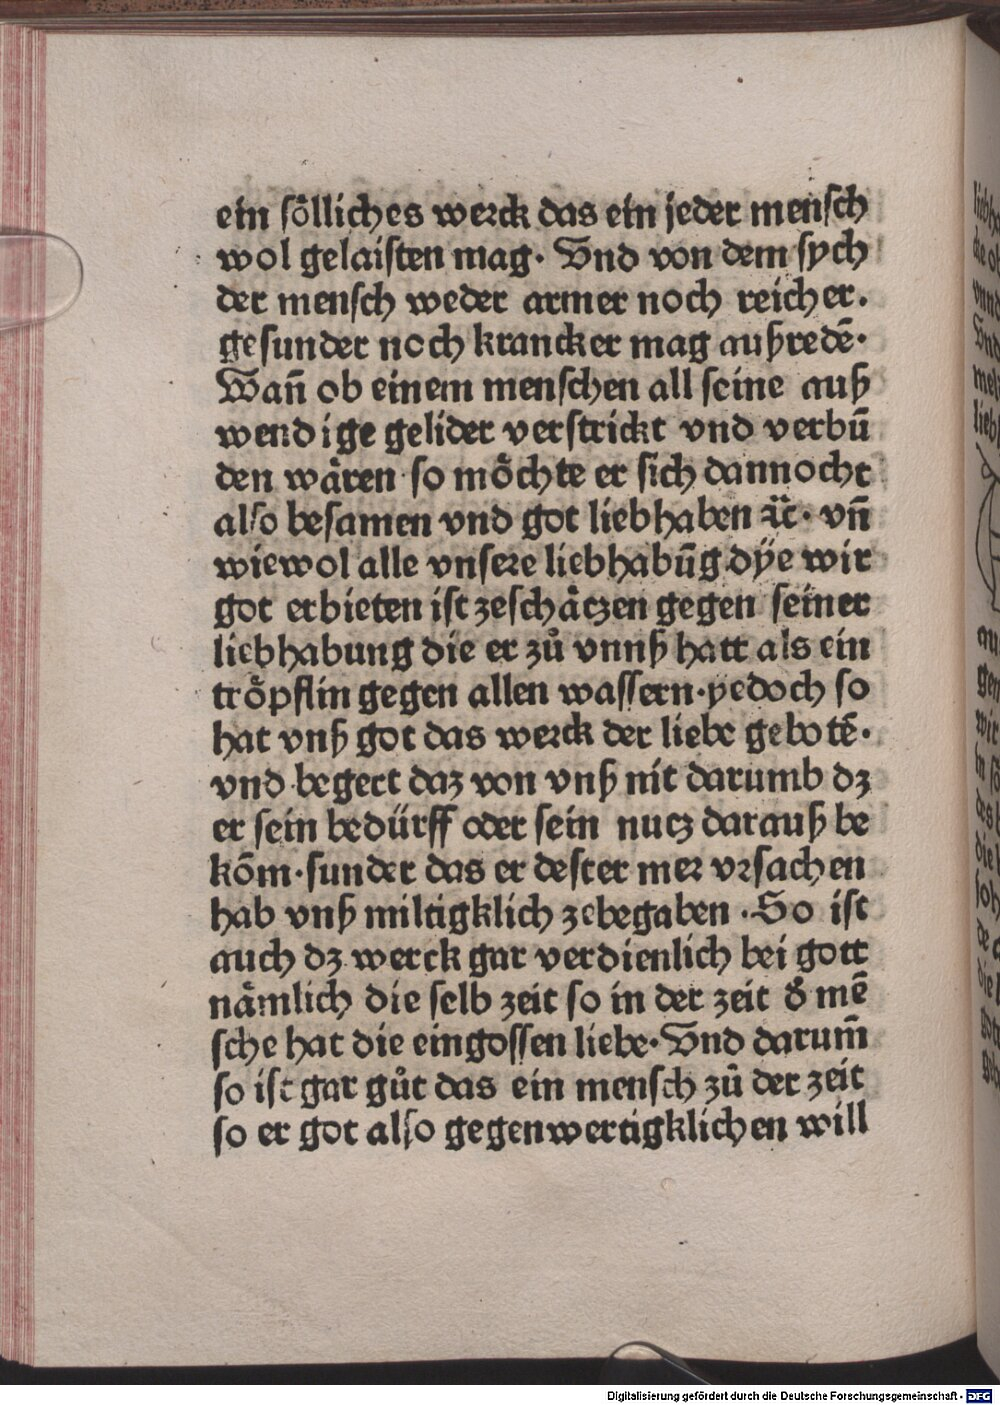 ein sölliches werck das ein jeder mensch
wol gelaisten mag. Vnd von dem sych
der mensch weder armer noch reicher.
gesunder noch krancker mag außredē.
Wañ ob einem menschen all seine auß
wendige gelider verstrickt vnd verbū
den wären so möchte er sich dannocht
also besamen vnd got liebhaben ⁊c̈. vñ
wiewol alle vnsere liebhabūg dÿe wir
got erbieten ist zeschätzen gegen seiner
liebhabung die er zů vnnß hatt als ein
tröpflin gegen allen wassern.yedoch so
hat vnß got das werck der liebe gebotē.
vnd begert daz von vnß nit darumb dz
er sein bedürff oder sein nutz darauß be
kōm.sunder das er dester mer vrsachen
hab vnß miltigklich zebegaben .So ist
auch dz werck gar verdienlich bei gott
nämlich die selb zeit so in der zeit ð mē
sche hat die eingossen liebe.Vnd darum̄
so ist gar gůt das ein mensch zů der zeit
so er got also gegenwertigklichen will
Digitalisierung gefördert durch die Deutsche Forschungsgemeinschaft - DFG